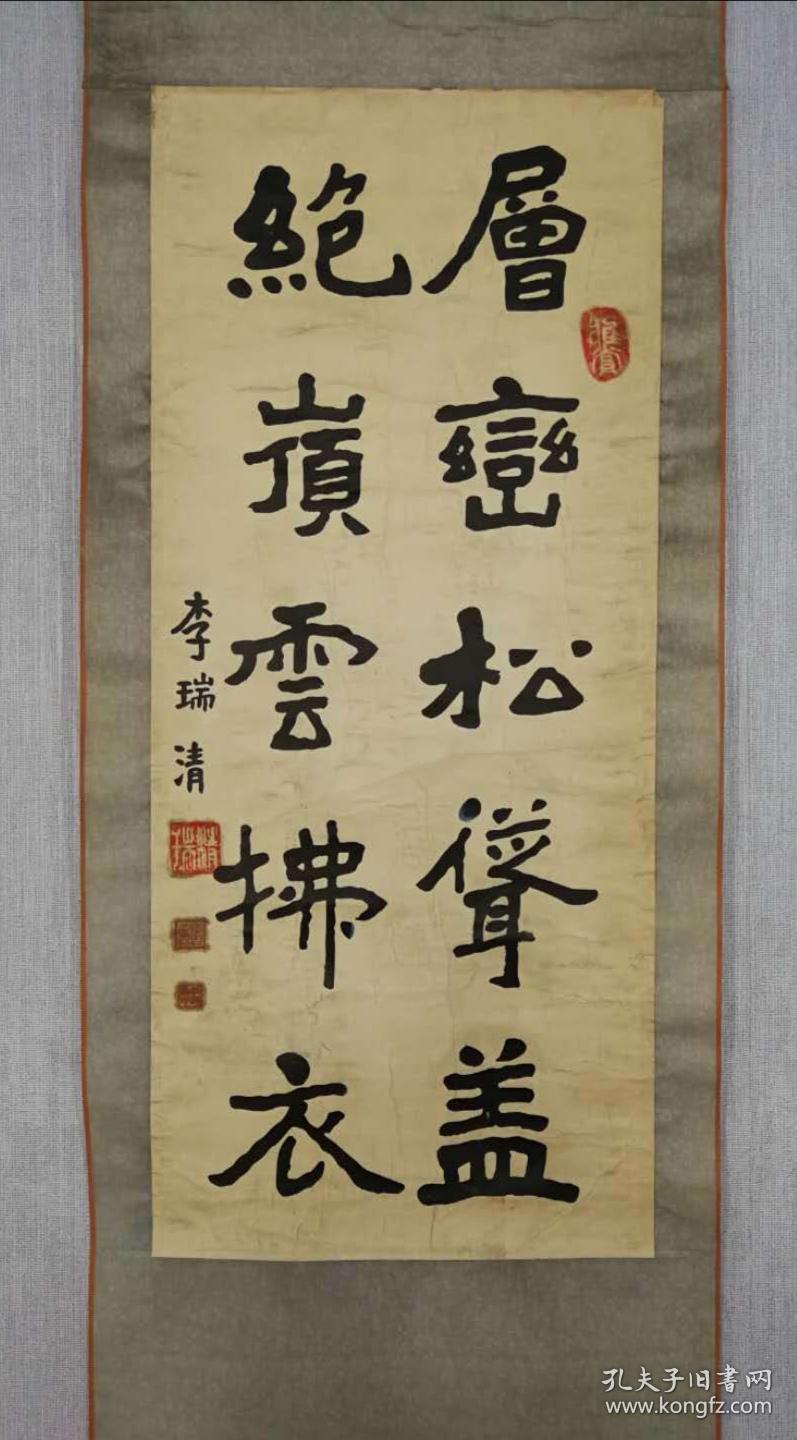 層巒松聳盖
絶嶺雲拂衣
李瑞清
孔夫子旧書网
www.kongfz.com